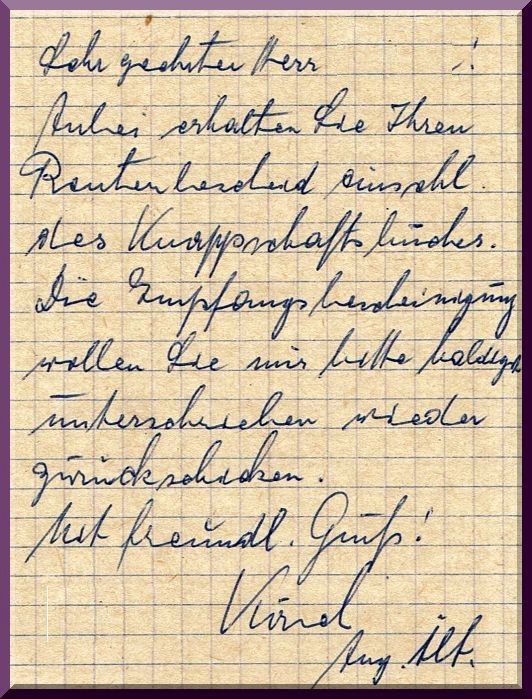 Sehr geehrter Herr !
Anbei erhalten Sie Ihren
Rentenbescheid einschl.
des Knappschaftsbuches.
Die Empfangsbescheinigung
wollen Sie mir bitte baldigst
unterschrieben wieder
zurückschicken.
Mit freundl. Gruß!
Knapp. Ält.